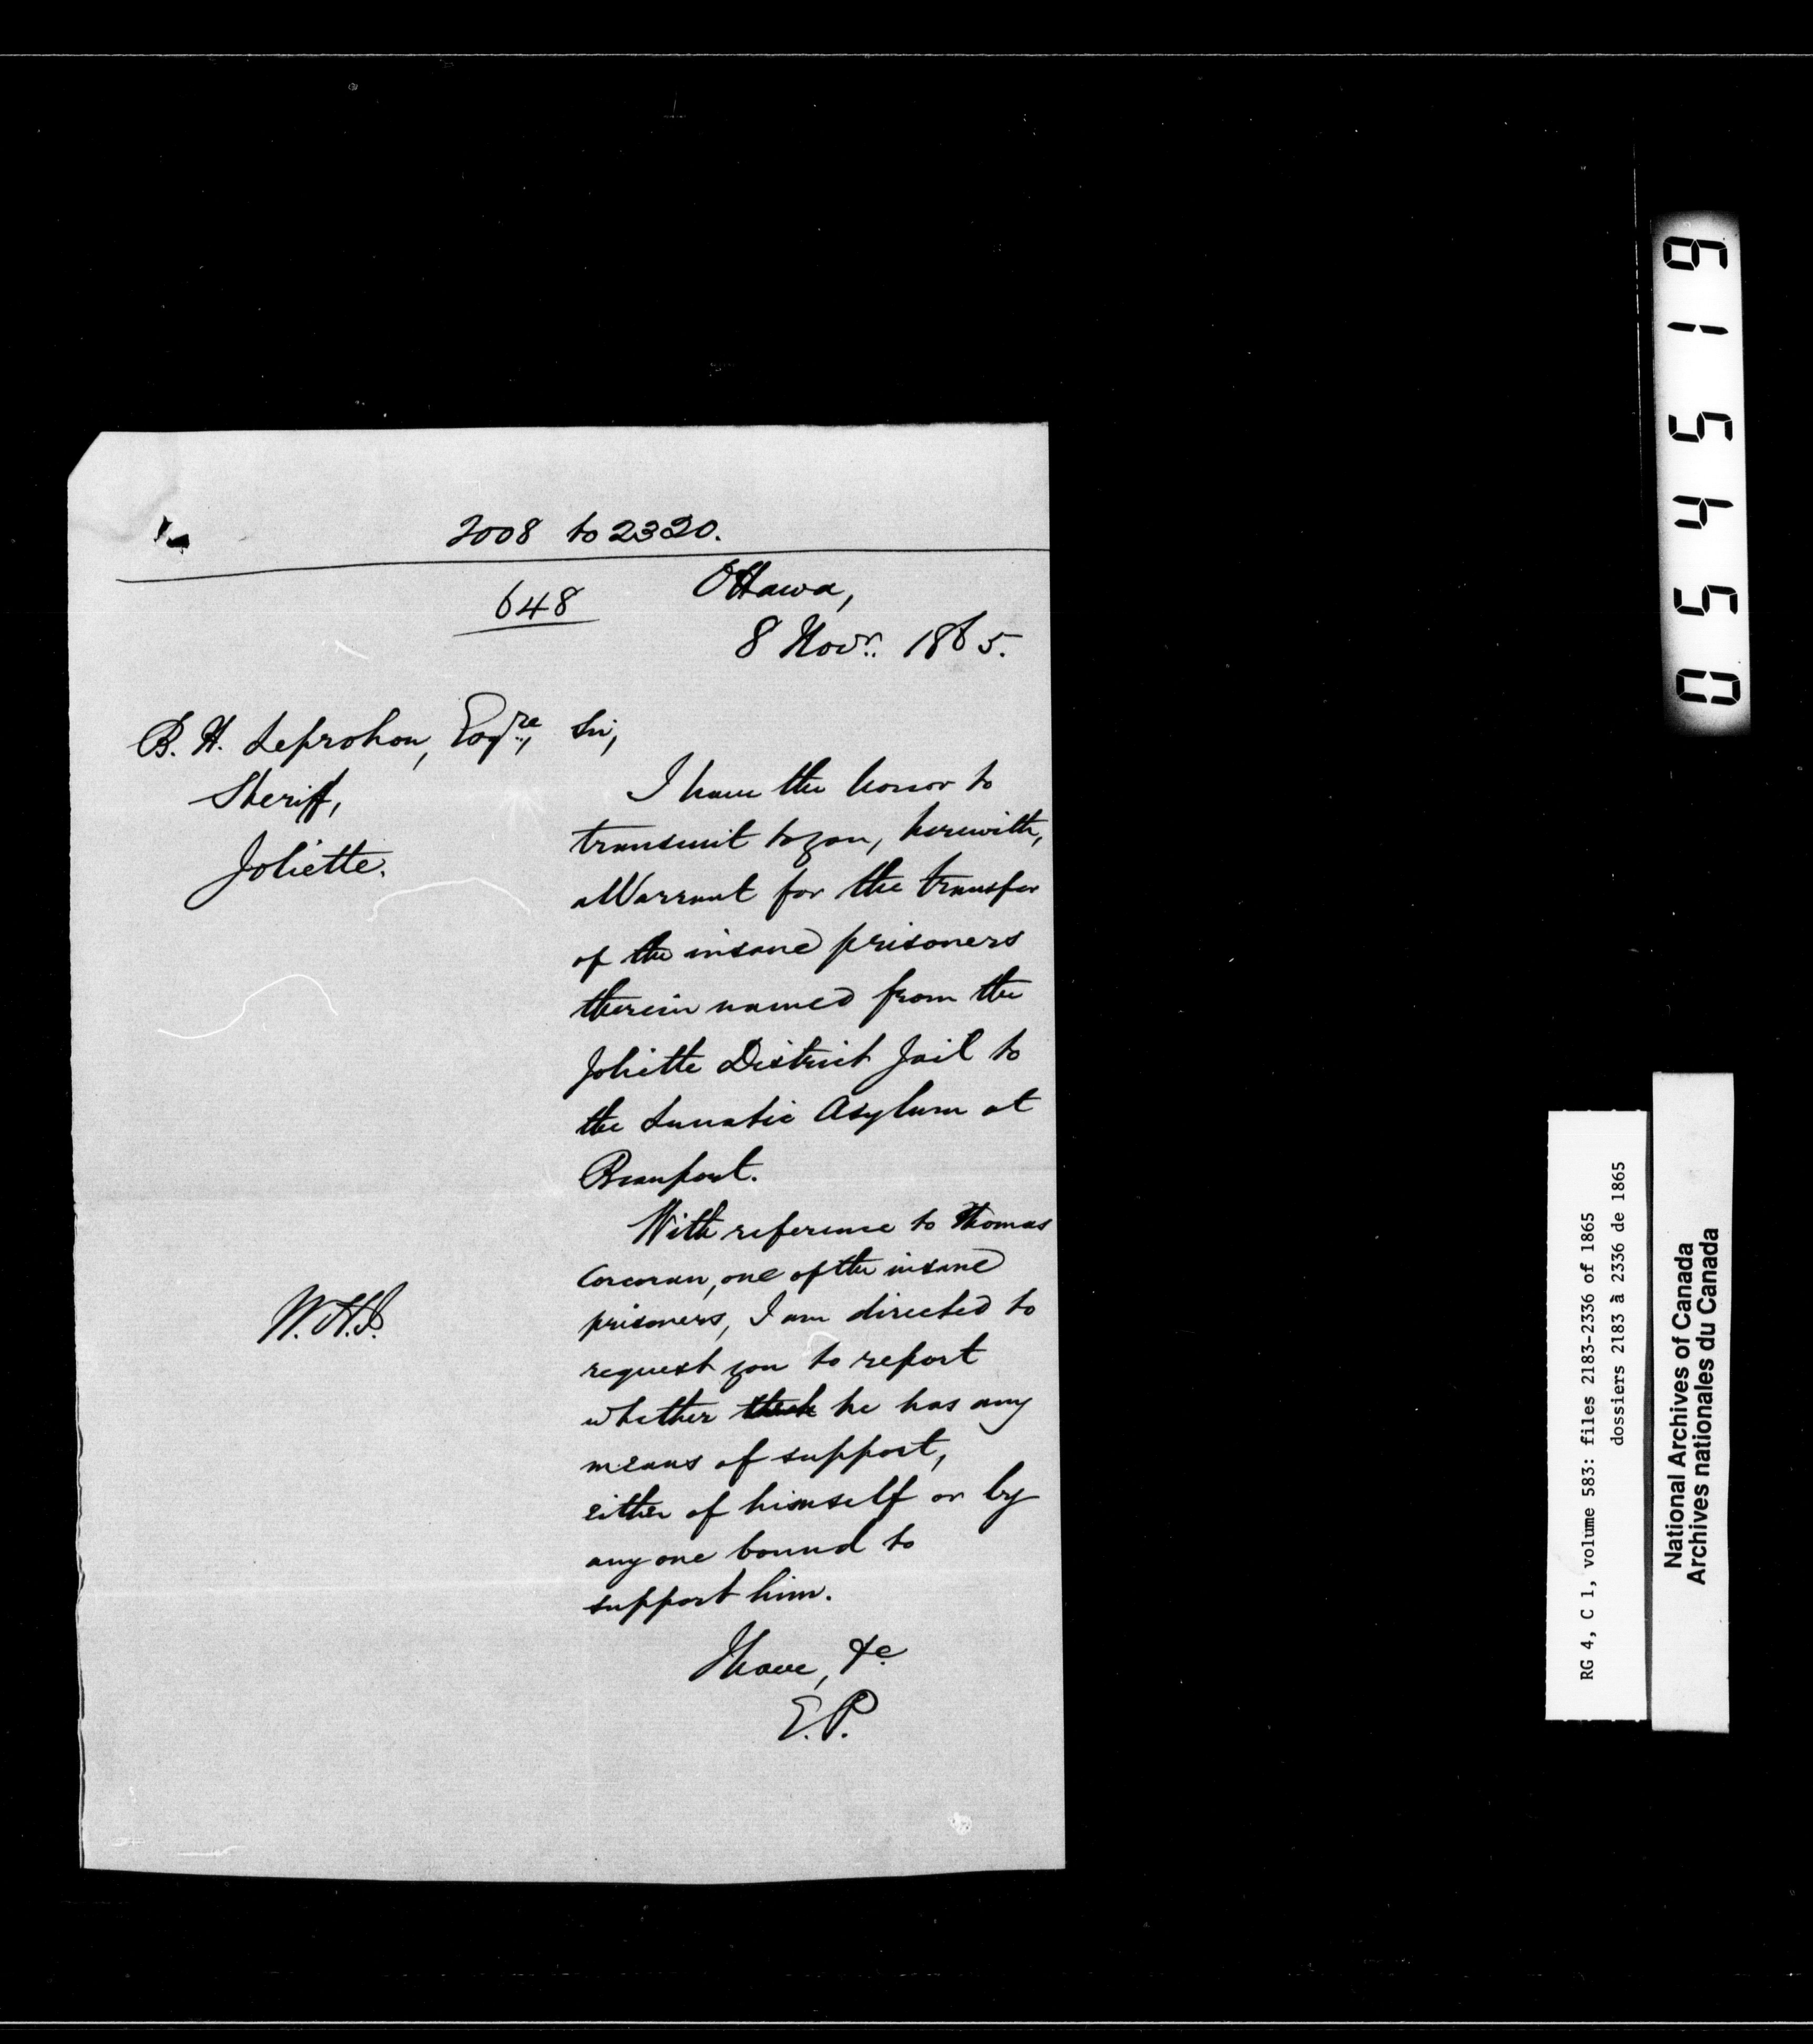 2008 to 2320.
648
Ottawa,
8 Novr. 1865.
B. H. Leprohon, Esqre,
Sheriff,
Joliette.
Sir,
I have the honor to
transmit to you, herewith,
a Warrant for the transfer
of the insane prisoners
therein named from the
Joliette District Jail to
the Lunatic Asylum at
Beauport.
With reference to Thomas
Corcoran, one of the insane
prisoners, I am directed to
request you to report
whether he has any
means of support,
either of himself or by
any one bound to
support him.
I have, &c
E.P.
W.H.J.
054519
RG 4, C 1, volume 583: files 2183-2336 of 1865
dossiers 2183 à 2336 de 1865
National Archives of Canada
Archives nationales du Canada